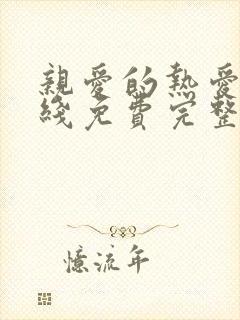 親愛的熱愛
綫免費完整
憶流年